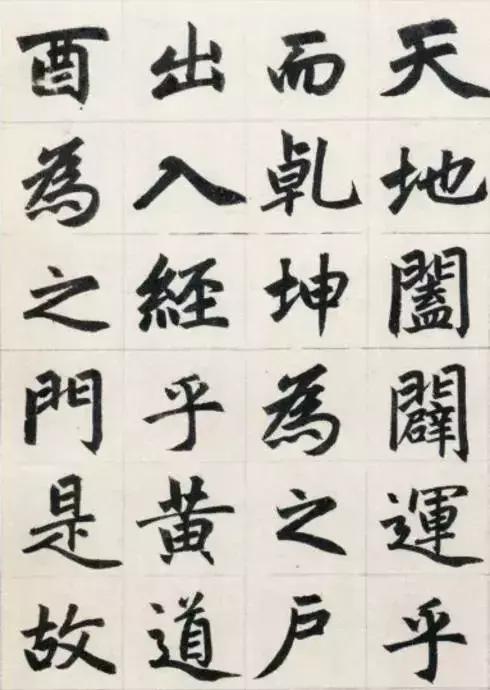 天地闔闢運乎
而乹坤為之户
出入經乎黃道
酉為之門是故